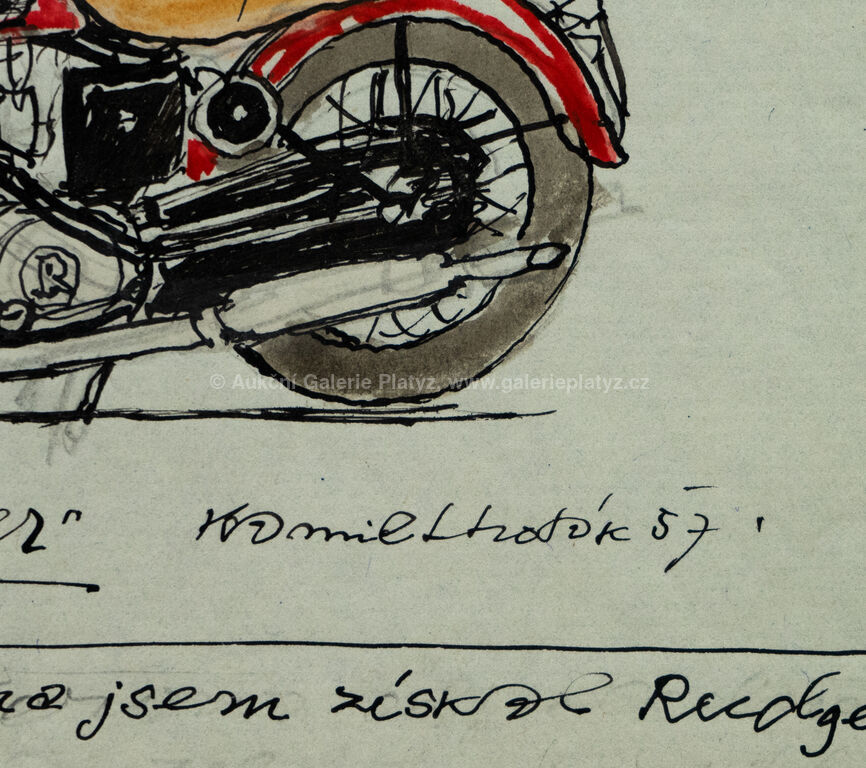 R
© Aukční Galerie Platýz, www.galerieplatyz.cz
er" Kamil Lhoták 57.
na jsem získal Rudge